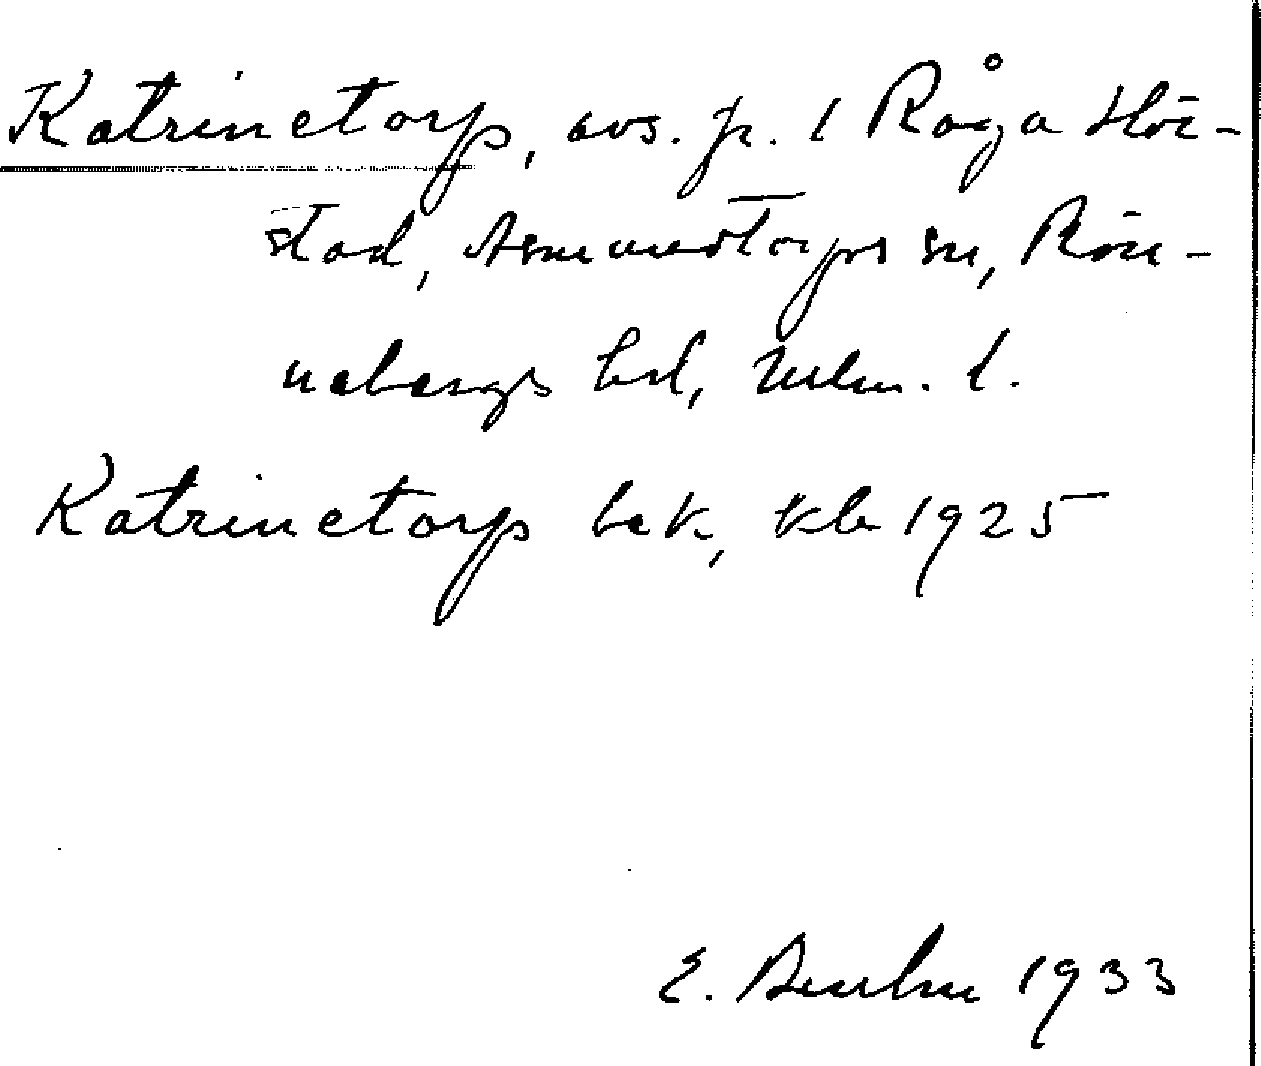 Katrinetorp, avs. fr. 1 Råga Hör-
stad, Asmundtorps sn, Rön-
nebergs hd, Mlm. l.
Katrinetorp bek, kb 1925
E. 1933